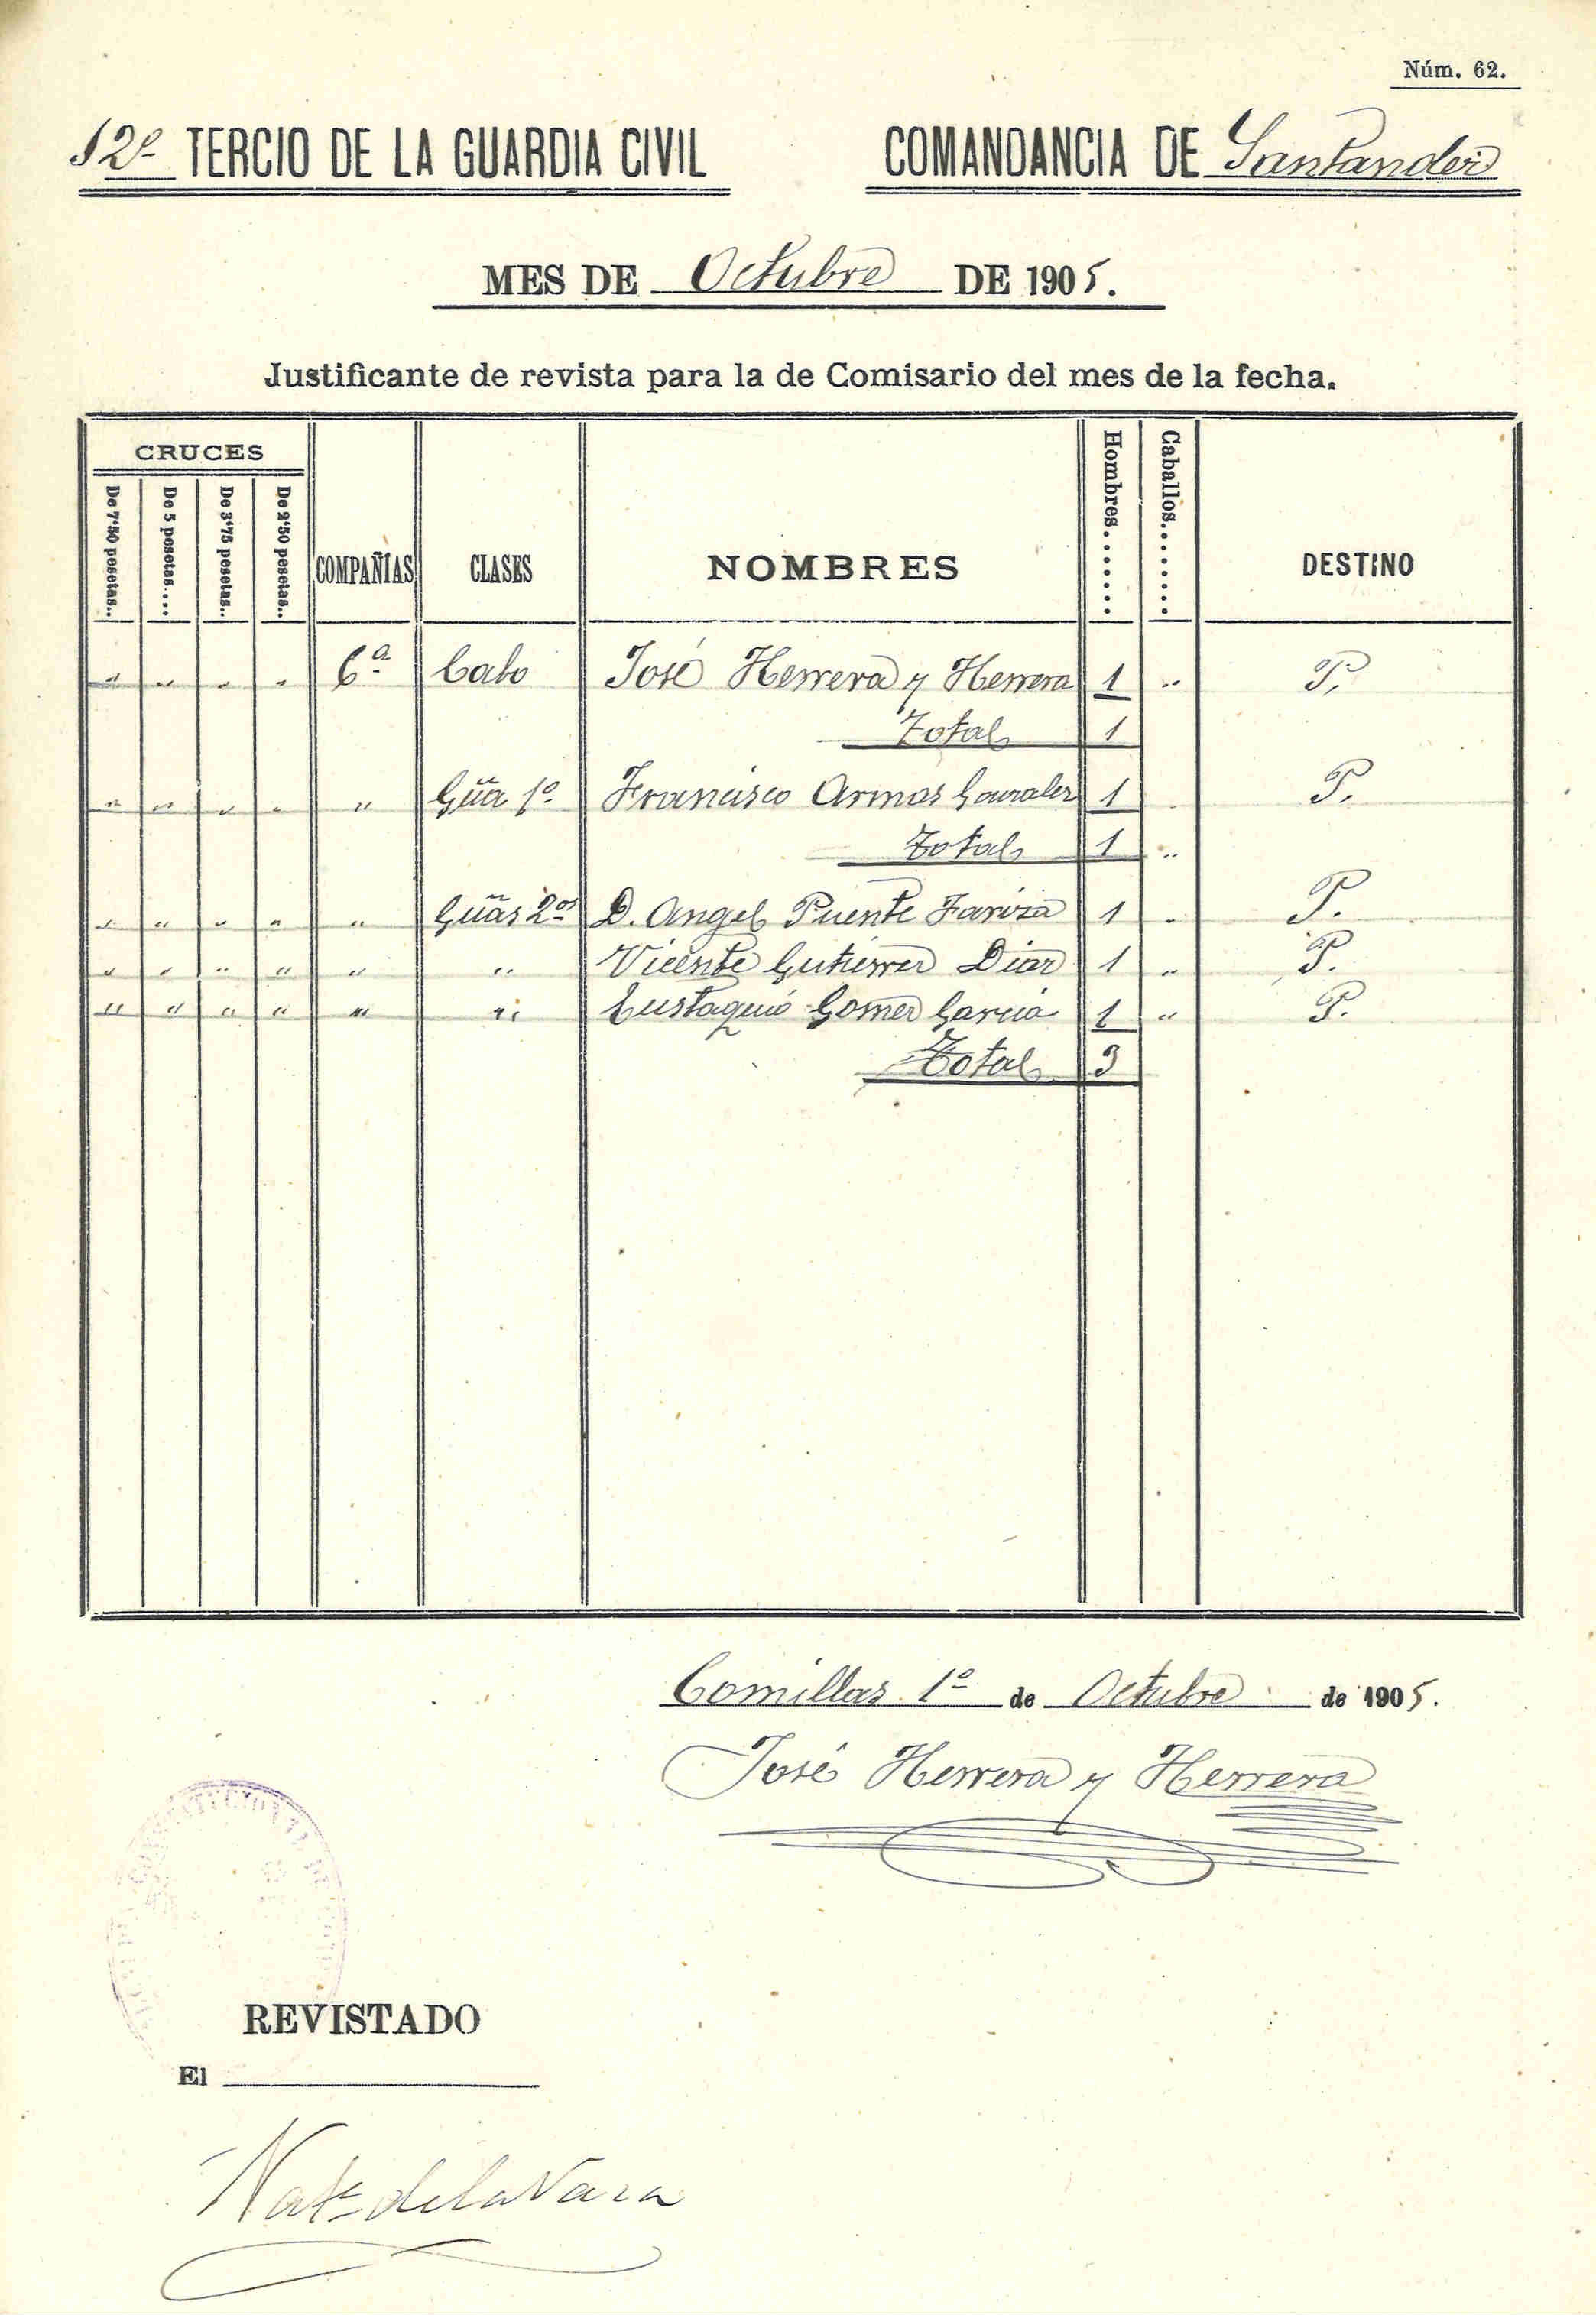 Núm. 62.
12º TERCIO DE LA GUARDIA CIVIL COMANDANCIA DE Santander
MES DE Octubre DE 1905.
Justificante de revista para la de Comisario del mes de la fecha.
CRUCES
De 7'50 pesetas.. De 5 pesetas.... De 3'75 pesetas.. De 2'50 pesetas.. COMPAÑIAS CLASES NOMBRES Hombres....... Caballos........ DESTINO
" " " " 6ª Cabo José Herrera y Herrera 1 " P.
Total 1
" " " " " Güa 1º Francisco Armas Gonzalez 1 P.
Total 1 "
" " " " " Güas 2os D. Angel Puente Fariza 1 " P.
" " " " " " Vicente Gutierrez Diaz 1 " P.
" " " " " " Eustaquio Gomez Garcia 1 " P.
Total 3
Comillas 1º de Octubre de 1905.
José Herrera y Herrera
CONSTITUCIONAL DE
REVISTADO
El
de la Vara